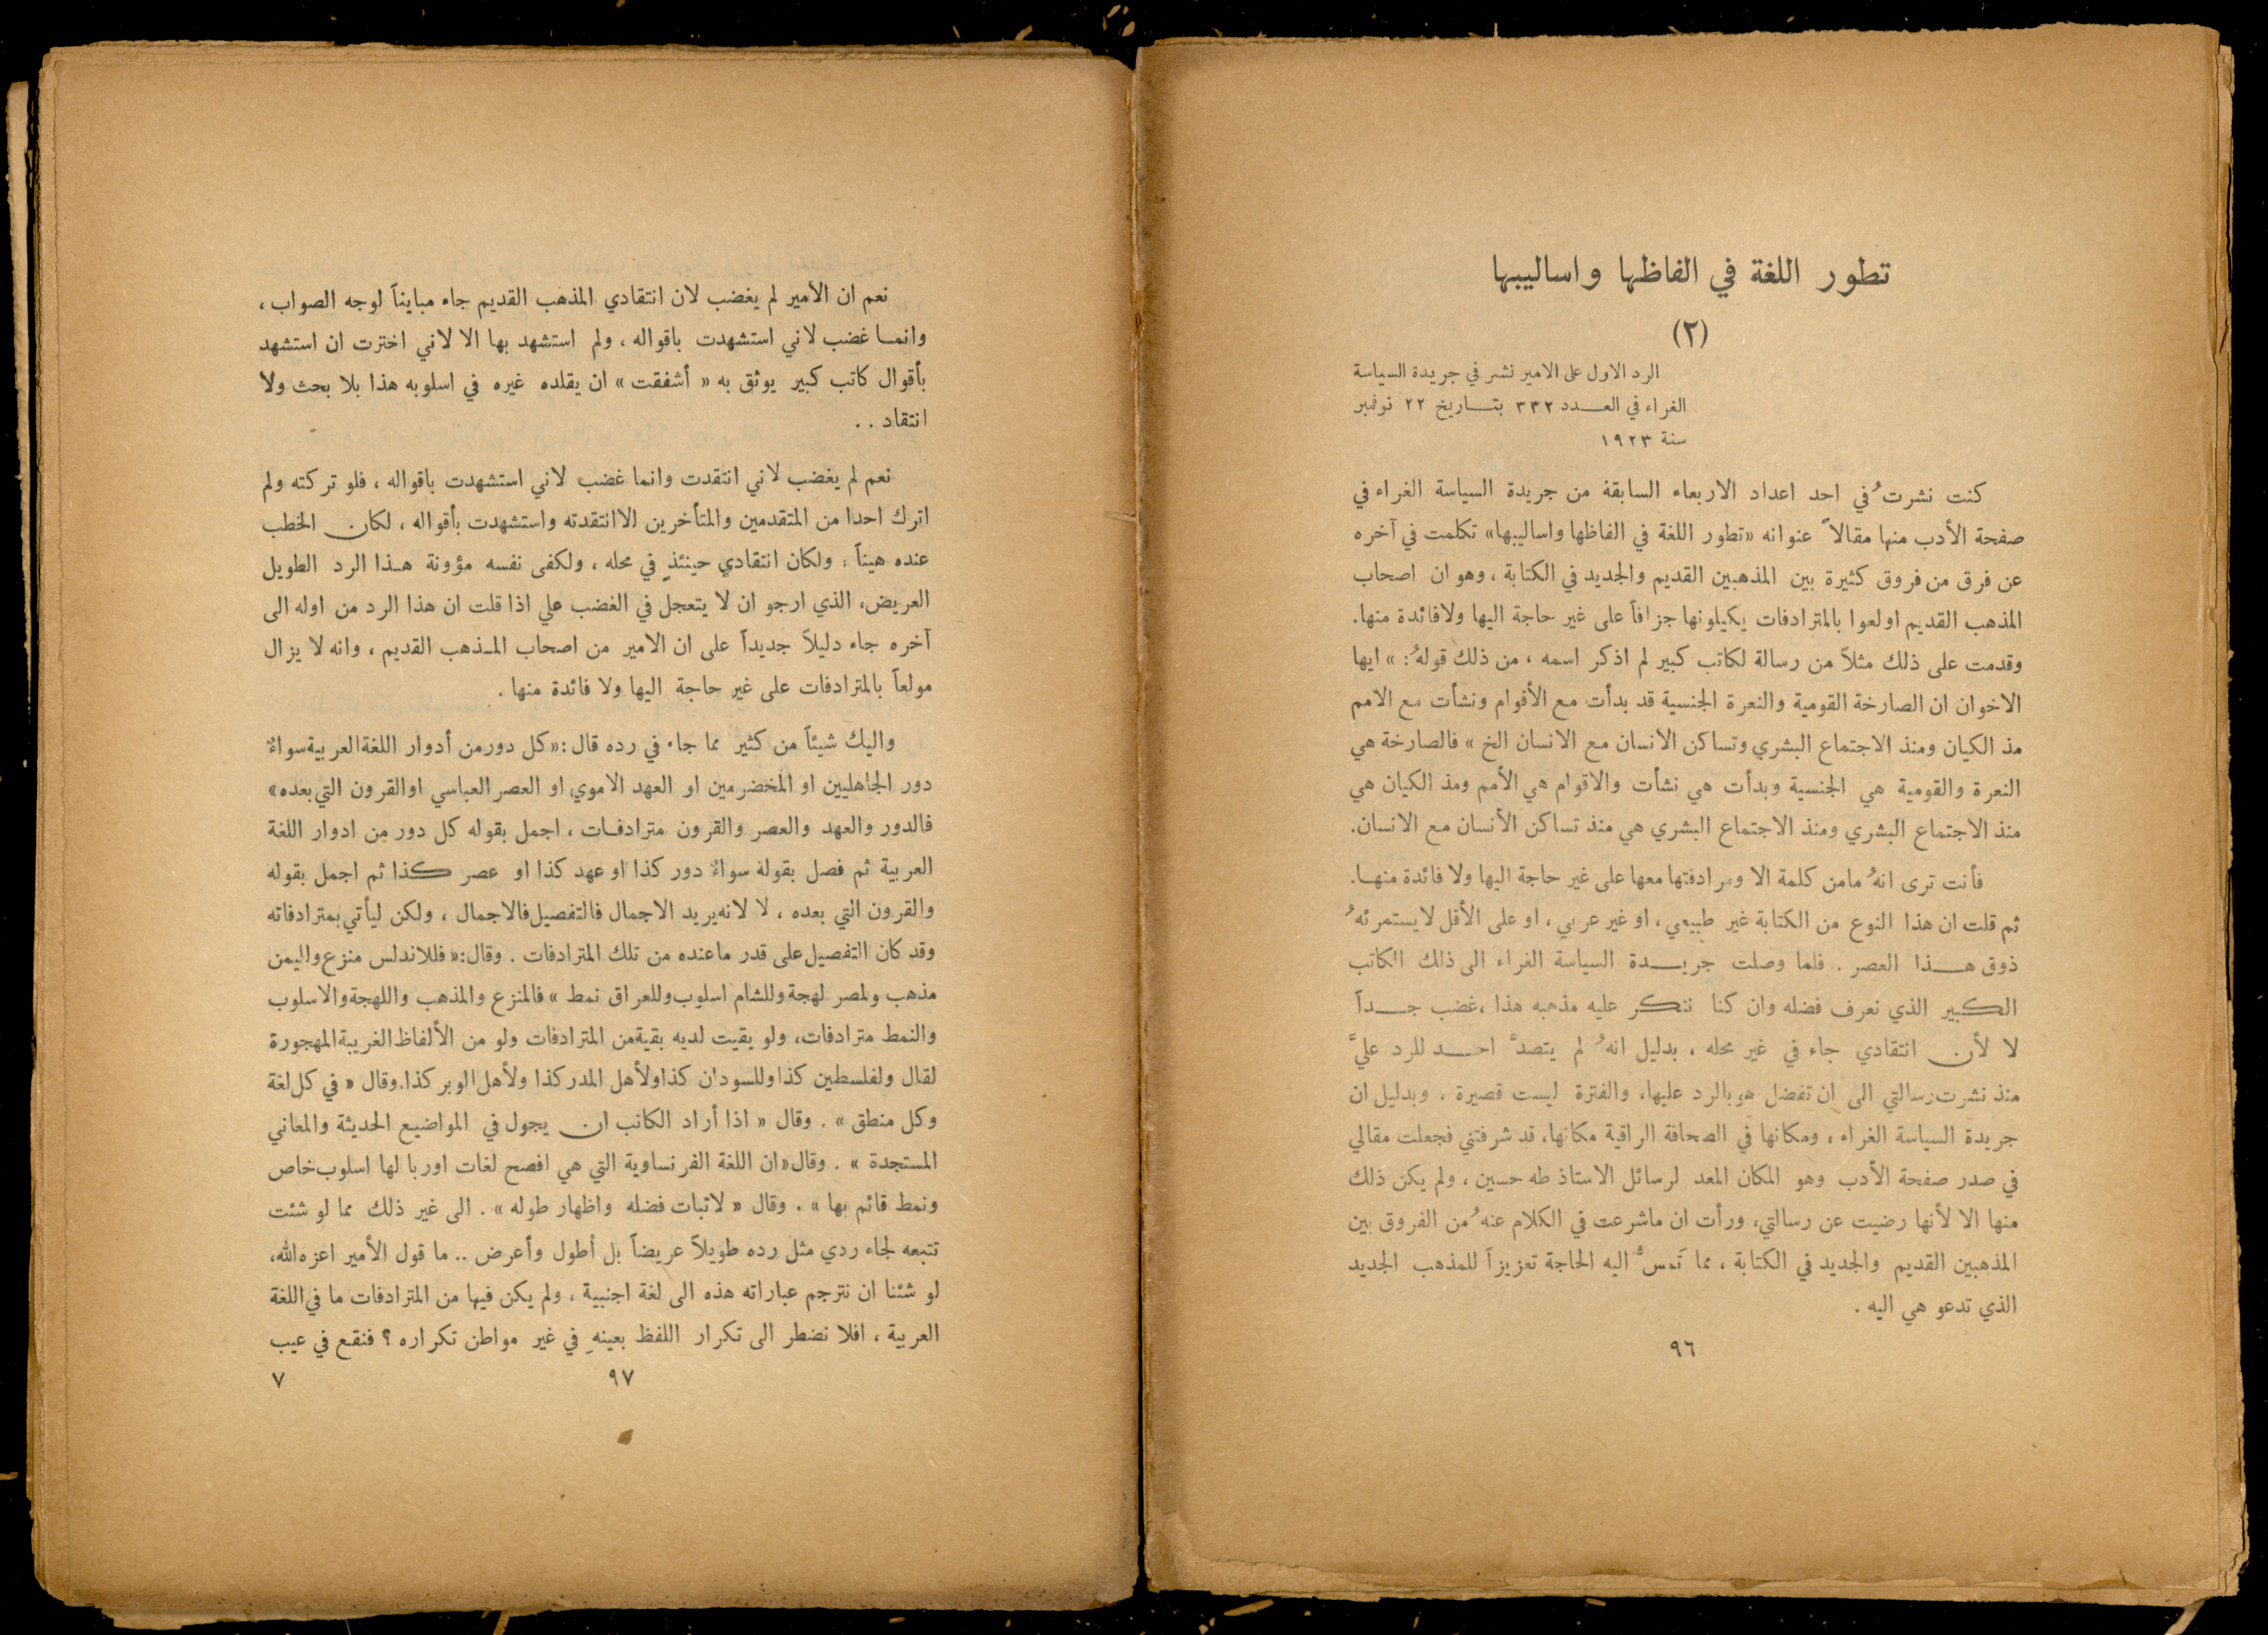 تطور اللغة في الفاظها واساليبها
(٢)
الرد الاول على الامير نشر في جريدة السياسة
الغراء في العـــدد ٣٣٢ بتـــاريخ ٢٢ نوفمبر
سنة ١٩٢٣
كنت نشرتُ في احد اعداد الاربعاء السابقة من جريدة السياسة الغراء في
صفحة الأدب منها مقالاً عنوانه «تطور اللغة في الفاظها واساليبها» تكلمت في آخره
عن فرق من فروق كثيرة بين المذهبين القديم والجديد في الكتابة ، وهو ان اصحاب
المذهب القديم اولعوا بالمترادفات يكيلونها جزافاً على غير حاجة اليها ولا فائدة منها.
وقدمت على ذلك مثلاً من رسالة لكاتب كبير لم اذكر اسمه ، من ذلك قولهُ : » ايها
الاخوان ان الصارخة القومية والنعرة الجنسية قد بدأت مع الأقوام ونشأت مع الامم
مذ الكيان ومنذ الاجتماع البشري وتساكن الانسان مع الانسان الخ » فالصارخة هي
النعرة والقومية هي الجنسية وبدأت هي نشأت والاقوام هي الأمم ومذ الكيان هي
منذ الاجتماع البشري ومنذ الاجتماع البشري هي منذ تساكن الأنسان مع الانسان.
فأنت ترى انهُ مامن كلمة الا ومرادفتها معها على غير حاجة اليها ولا فائدة منهـا.
ثم قلت ان هذا النوع من الكتابة غير طبيعي ، او غير عربي ، او على الأقل لا يستمرئهُ
ذوق هــذا العصر . فلما وصلت جريــدة السياسة الغراء الى ذلك الكاتب
الكبير الذي نعرف فضله وان كنا ننكر عليه مذهبه هذا ، غضب جــداً
لا لأن انتقادي جاء في غير محله ، بدليل انهُ لم يتصدَّ احــد للرد عليَّ
منذ نشرت رسالتي الى ان تفضل هو بالرد عليها، والفترة ليست قصيرة ، وبدليل ان
جريدة السياسة الغراء ، ومكانها في الصحافة الراقية مكانها، قد شرفتني فجعلت مقالي
في صدر صفحة الأدب وهو المكان المعد لرسائل الاستاذ طه حسين ، ولم يكن ذلك
منها الا لأنها رضيت عن رسالتي، ورأت ان ماشرعت في الكلام عنهُ من الفروق بين
المذهبين القديم والجديد في الكتابة ، مما تَمسُّ اليه الحاجة تعزيزاً للمذهب الجديد
الذي تدعو هي اليه .
٩٦
نعم ان الامير لم يغضب لان انتقادي المذهب القديم جاء مبايناً لوجه الصواب ،
وانمـا غضب لاني استشهدت باقواله ، ولم استشهد بها الا لاني اخترت ان استشهد
بأقوال كاتب كبير يوثق به « أشفقت » ان يقلده غيره في اسلوبه هذا بلا بحث ولا
انتقاد . .
نعم لم يغضب لاني انتقدت وانما غضب لاني استشهدت باقواله ، فلو تركته ولم
اترك احدا من المتقدمين والمتأخرين الا انتقدته واستشهدت بأقواله ، لكان الخطب
عنده هيناً ، ولكان انتقادي حينئذٍ في محله ، ولكفى نفسه مؤونة هـذا الرد الطويل
العريض، الذي ارجو ان لا يتعجل في الغضب علي اذا قلت ان هذا الرد من اوله الى
آخره جاء دليلاً جديداً على ان الامير من اصحاب المـذهب القديم ، وانه لا يزال
مولعاً بالمترادفات على غير حاجة اليها ولا فائدة منها .
واليك شيئاً من كثير مما جاء في رده قال : «كل دور من أدوار اللغة العربية سواءٌ
دور الجاهليين او المخضرمين او العهد الاموي او العصر العباسي او القرون التي بعده»
فالدور والعهد والعصر والقرون مترادفـات ، اجمل بقوله كل دور من ادوار اللغة
العربية ثم فصل بقولة سواءٌ دور كذا او عهد كذا او عصر كذا ثم اجمل بقوله
والقرون التي بعده ، لا لانه يريد الاجمال فالتفصيل فالاجمال ، ولكن ليأتي بمترادفاته
وقد كان التفصيل على قدر ما عنده من تلك المترادفات . وقال: « فللاندلس منزع ولليمن
مذهب ولمصر لهجة وللشام اسلوب وللعراق نمط » فالمنزع والمذهب واللهجة والاسلوب
والنمط مترادفات، ولو بقيت لديه بقية من المترادفات ولو من الألفاظ الغريبة المهجورة
لقال ولفلسطين كذا وللسودان كذا ولأهل المدر كذا ولأهل الوبر كذا. وقال « في كل لغة
وكل منطق » . وقال « اذا أراد الكاتب ان يجول في المواضيع الحديثة والمعاني
المستجدة » . وقال «ان اللغة الفرنساوية التي هي افصح لغات اوربا لها اسلوب خاص
ونمط قائم بها » . وقال « لاثبات فضله واظهار طوله » . الى غير ذلك مما لو شئت
تتبعه لجاء ردي مثل رده طويلاً عريضاً بل أطول وأعرض .. ما قول الأمير اعزه الله،
لو شئنا ان نترجم عباراته هذه الى لغة اجنبية ، ولم يكن فيها من المترادفات ما في اللغة
العربية ، افلا نضطر الى تكرار اللفظ بعينهِ في غير مواطن تكراره ؟ فنقع في عيب
٩٧
٧